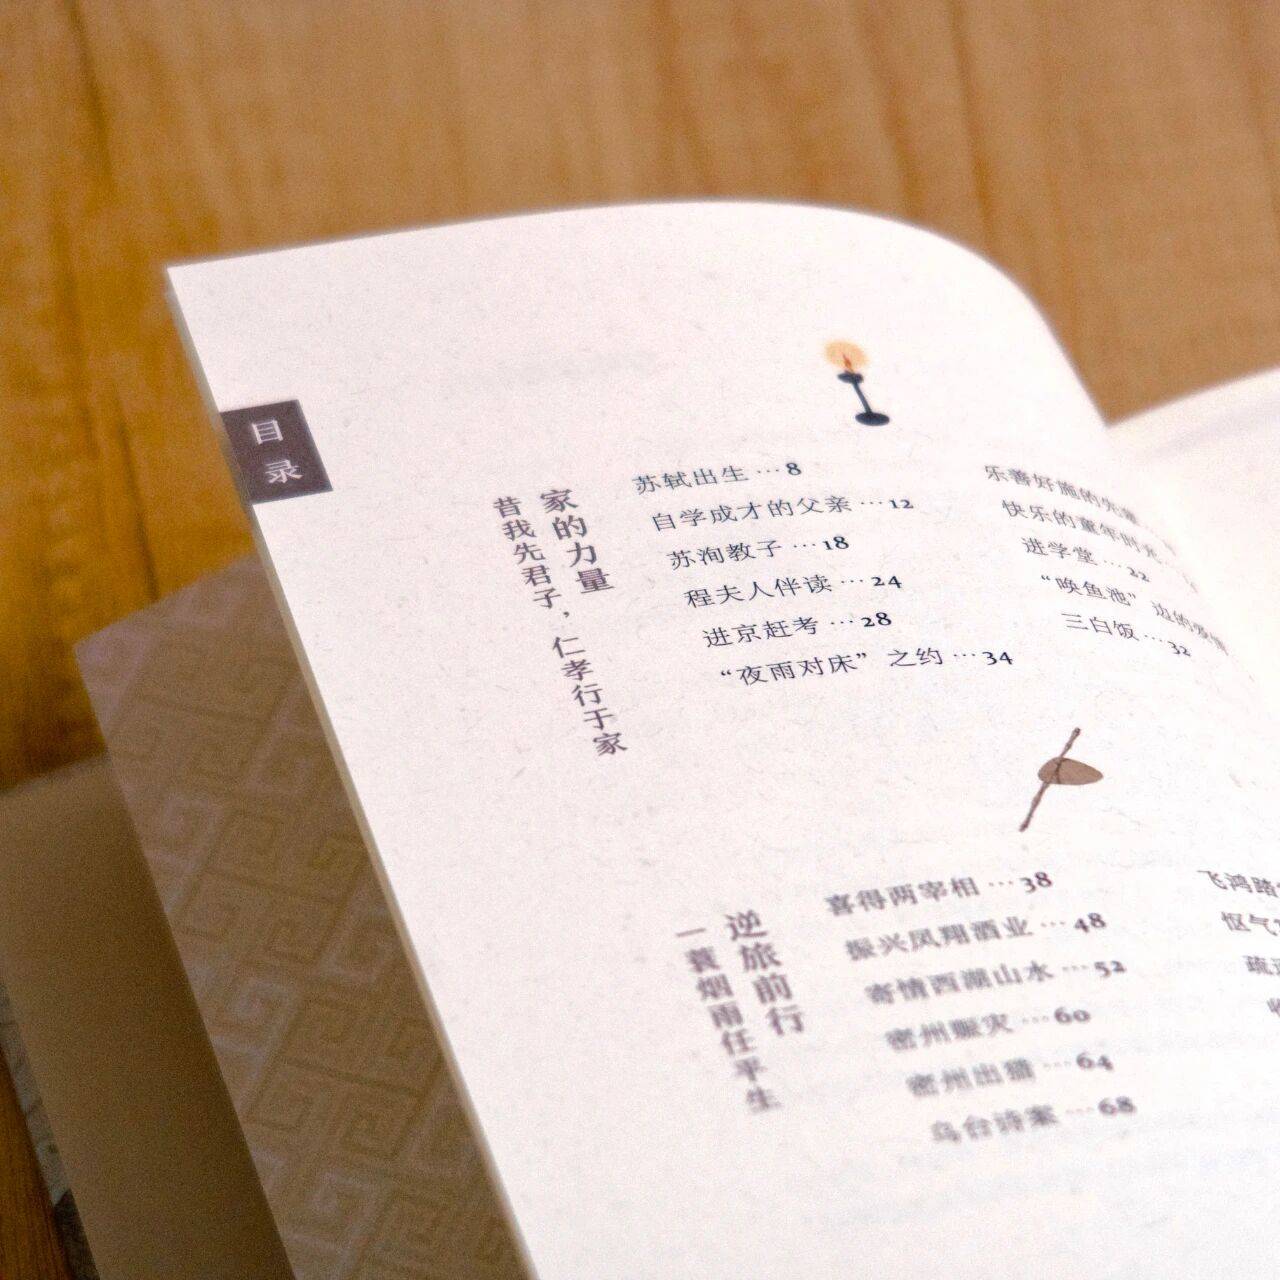 目录
家的力量
昔我先君子，仁孝行于家
苏轼出生…8
自学成才的父亲…12
苏洵教子…18
程夫人伴读…24
进京赶考…28
“夜雨对床”之约…34
乐善好施的先辈
快乐的童年时光
进学堂…22
“唤鱼池”边的
三白饭…32
逆旅前行
一蓑烟雨任平生
喜得两宰相…38
振兴凤翔酒业…48
寄情西湖山水…52
密州赈灾…60
密州出猎…64
乌台诗案…68
飞鸿踏
怄气
疏